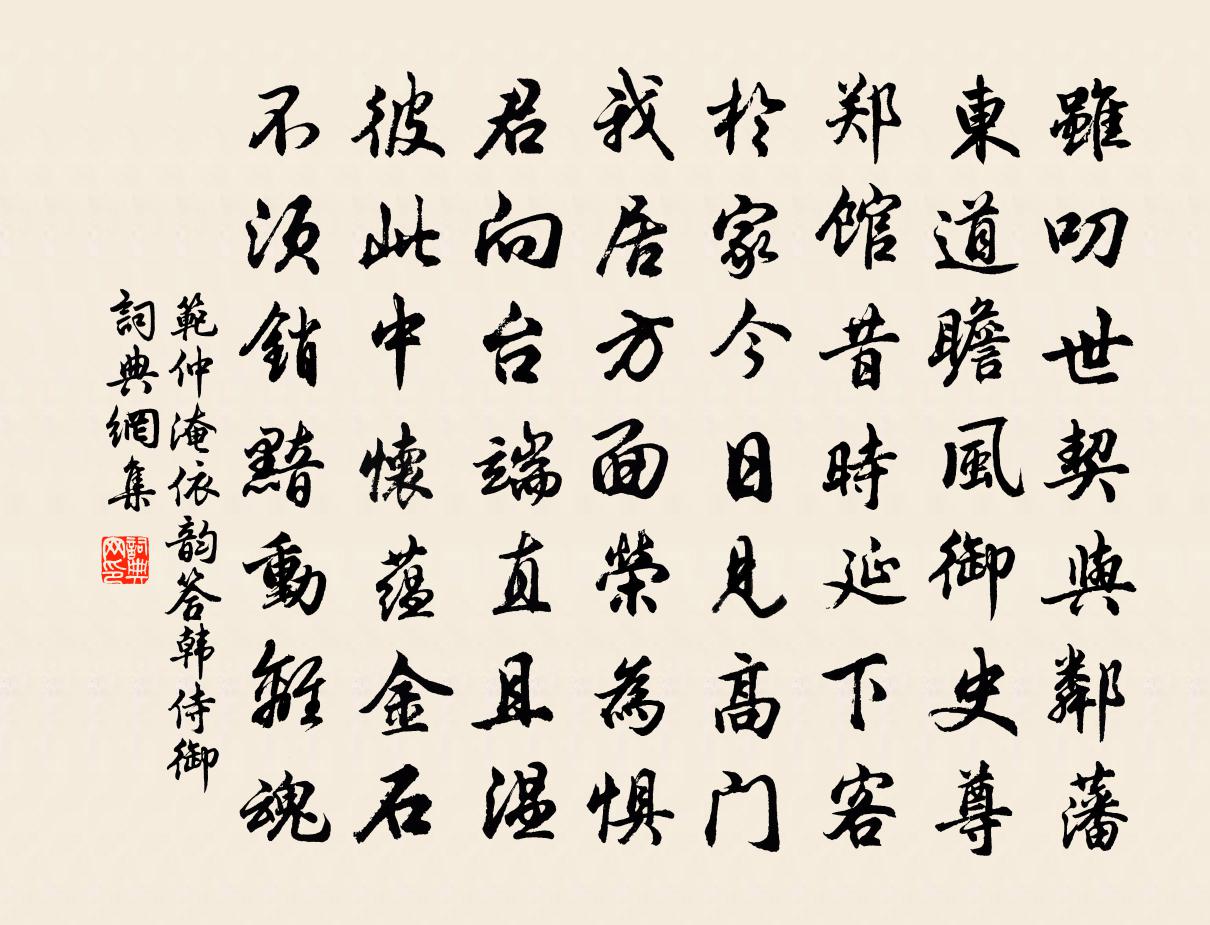 雖叨世契與鄰藩
東道瞻風御史尊
郑館昔時延下客
於家今日見高门
我居方面榮為惧
君向台端直且温
彼此中懷蕴金石
不须銷黯動離魂
範仲淹依韵答韩侍御
詞典網集
詞典网印